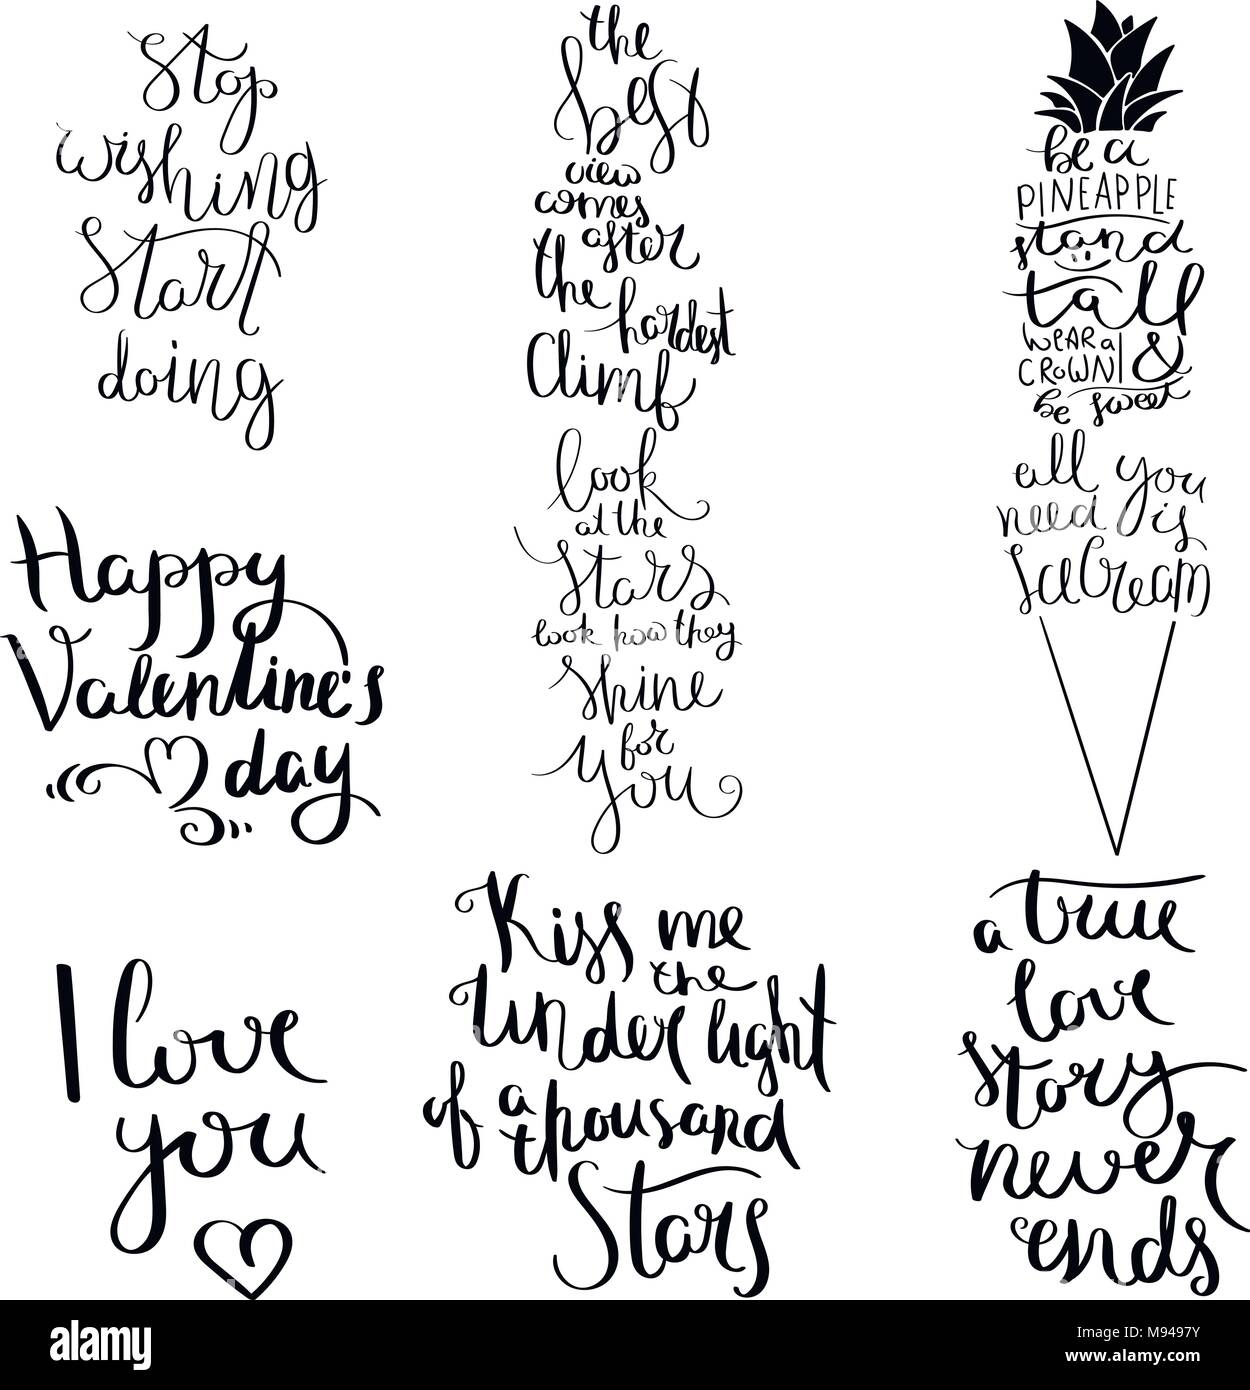 Stop
wishing
Start
doing
the
best
view
comes
after
the
hardest
Climb
be a
PINEAPPLE
stand
tall
WEAR a
CROWN &
be sweet
Happy
Valentine's
day
look
at the
Stars
look how they
Shine
for
you
all you
need is
IceCream
I love
you
Kiss me
Under the light
of a thousand
Stars
a true
love
story
never
ends
alamy
Image ID: M9497Y
www.alamy.com